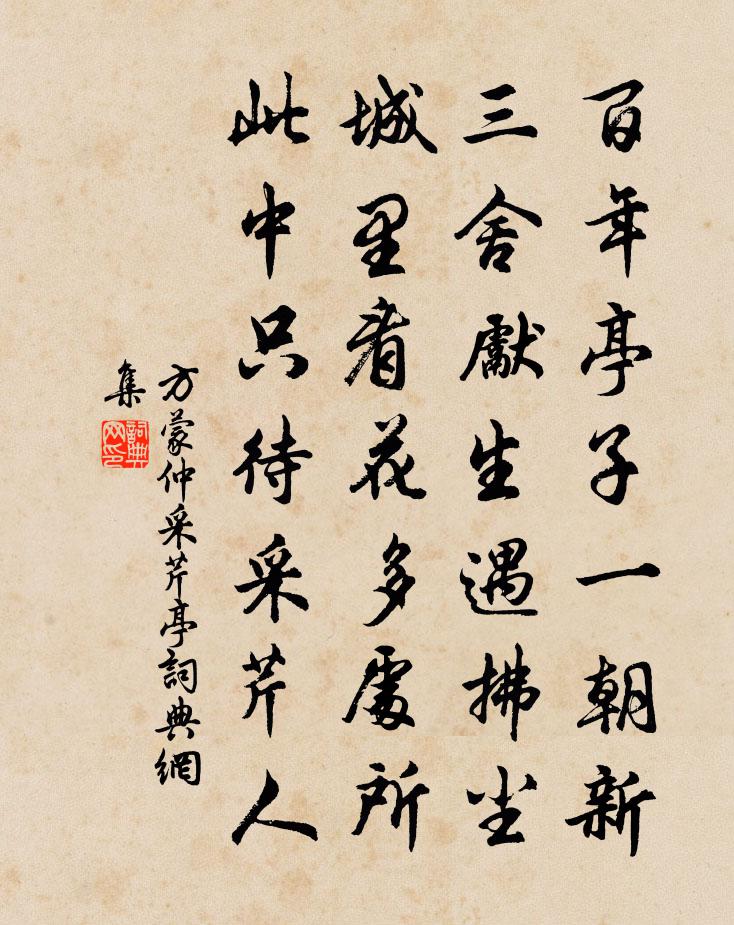 百年亭子一朝新
三舍獻生遇拂尘
城里看花多處所
此中只待采芹人
方蒙仲采芹亭詞典網
集
詞典
网印